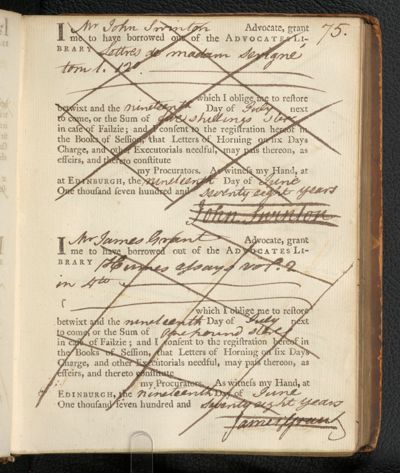 75.
I Mr John Swinton Advocate, grant
me to have borrowed out of the ADVOCATES LI-
BRARY Lettres de madam Sevigné
tom 1. 12o.
which I oblige me to restore
betwixt and the nineteenth Day of July next
to come, or the Sum of five shillings Ster
in case of Failzie; and I consent to the registration hereof in
the Books of Session, that Letters of Horning on six Days
Charge, and other Executorials needful, may pass thereon, as
effeirs, and thereto constitute
my Procurators. As witness my Hand, at
at EDINBURGH, the nineteenth Day of June
One thousand seven hundred and seventy eight years
John Swinton
I Mr James Grant Advocate, grant
me to have borrowed out of the ADVOCATES LI-
BRARY Humes essays vol. 2
in 4to
which I oblige me to restore
betwixt and the nineteenth Day of July next
to come, or the Sum of one pound Ster
in case of Failzie; and I consent to the registration hereof in
the Books of Session, that Letters of Horning on six Days
Charge, and other Executorials needful, may pass thereon, as
effeirs, and thereto constitute
my Procurators. As witness my Hand, at
EDINBURGH, the nineteenth Day of June
One thousand seven hundred and seventy eight years
James Grant